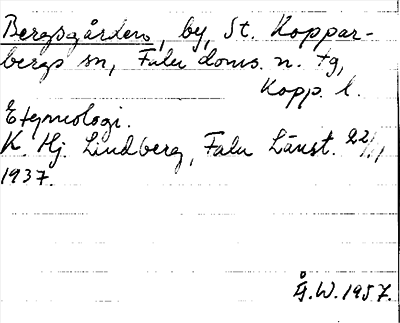 Bergsgården, by, St. Koppar-
bergs sn, Falu doms. n. tg,
Kopp. l.
Etymologi.
K. Hj. Lindberg, Falu Länst. 22/11
1937.
Å.W. 1957.